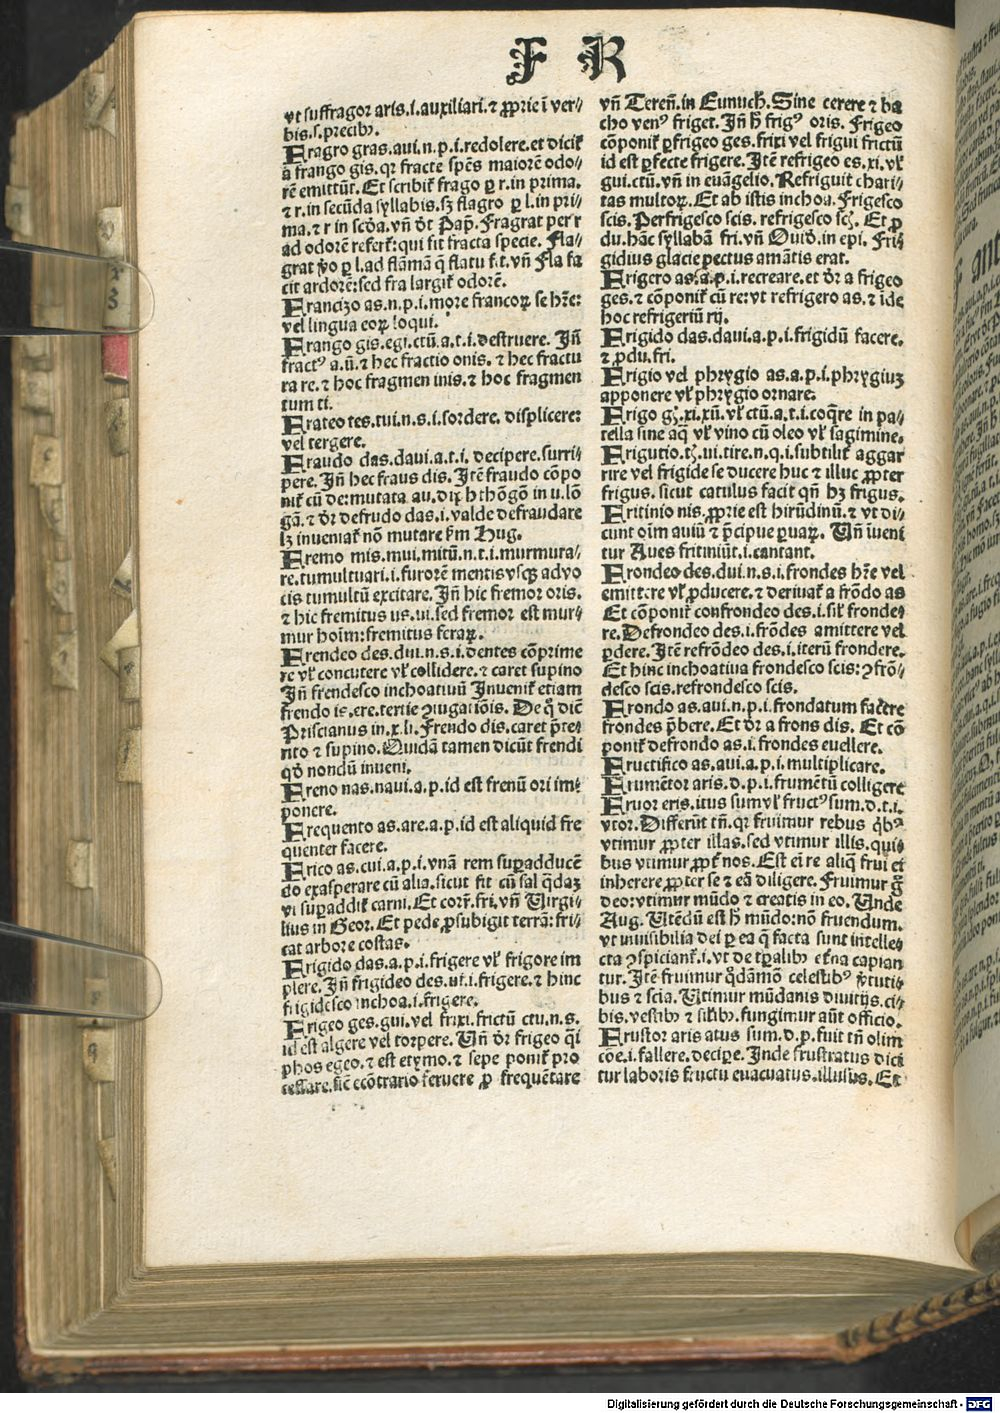 F R
vt suffragor aris.i.auxiliari.⁊ ꝓprie ĩ ver⸗
bis.s.precibꝰ.
FRagro gras.aui.n.p.i.redolere.et dicit̃
a frango gis.qꝛ fracte spẽs maiorẽ odo⸗
rẽ emittũt. Et scribit̃ frago ꝑ r.in prima.
⁊ r.in secũda syllabis.sꝫ flagro ꝑ l.in pri⸗
ma.⁊ r in scḋa.vñ ðt Pap̃. Fragrat per r
ad odorẽ refert̃:qui fit fracta specie. Fla⸗
grat ṽo ꝑ l.ad flãmã q̃ flatu f.t.vñ Fla fa
cit ardorẽ:sed fra largit̃ odorẽ.
FRancizo as.n.p.i.more francoꝝ se hr̃e:
vel lingua eoꝝ loqui.
FRango gis.egi.ctũ.a.t.i.destruere. Jñ
fractꝰ a.ũ.⁊ hec fractio onis.⁊ hec fractu
ra re.⁊ hoc fragmen inis.⁊ hoc fragmen
tum ti.
FRateo tes.tui.n.s.i.sordere. displicere:
vel tergere.
FRaudo das.daui.a.t.i.decipere.surri⸗
pere. Jñ hec fraus dis. Jtẽ fraudo cõpo
nit̃ cũ de:mutata au.dip̱hthõgõ in u.lõ
gã.⁊ ðr defrudo das.i.valde defraudare
lꝫ inueniat̃ nõ mutare ẜm Hug.
FRemo mis.mui.mitũ.n.t.i.murmura⸗
re.tumultuari.i.furorẽ mentis vsqꝫ ad vo
cis tumultũ excitare. Jñ hic fremor oris.
⁊ hic fremitus us.ui.sed fremor est mur⸗
mur hoĩm:fremitus feraꝝ.
FRendeo des.dui.n.s.i.dentes cõprime
re vl̃ concutere vl̃ collidere.⁊ caret supino
Jñ frendesco inchoatiuũ Jnuenit̃ etiam
frendo is.ere.tertie ꝯiugatiõis. De q̊ dič
Priscianus in.x.li. Frendo dis.caret p̃te⸗
rito ⁊ supino. Quidã tamen dicũt frendi
qḋ nondũ inueni.
FReno nas.naui.a.p.id est frenũ ori im⸗
ponere.
FRequento as.are.a.p.id est aliquid fre
quenter facere.
FRico as.cui.a.p.i.vnã rem suꝑadducẽ
do exasperare cũ alia.sicut fit cũ sal q̃daꝫ
vi suꝑaddit̃ carni. Et corr̃.fri.vñ Virgi⸗
lius in Geor. Et pede ꝓsubigit terrã:fri⸗
cat arbore costas.
FRigido das.a.p.i.frigere vl̃ frigore im
plere. Jñ frigideo des.ui.i.frigere.⁊ hinc
frigidesco inchoa.i.frigere.
FRigeo ges.gui.vel frixi.frictũ ctu.n.s.
id est algere vel torpere. Vñ ðr frigeo q̃i
phos egeo.⁊ est etymo.⁊ sepe ponit̃ pro
cessare.sic̃ ecõtrario feruere ꝓ frequẽtare
vñ Tereñ.in Eunuch̃. Sine cerere ⁊ ba
cho venꝰ friget. Jñ h̃ frigꝰ oris. Frigeo
cõponit̃ ꝑfrigeo ges.frixi vel frigui frictũ
id est ꝑfecte frigere. Jtẽ refrigeo es.xi.vl̃
gui.ctũ.vñ in euãgelio. Refriguit chari⸗
tas multoꝝ. Et ab istis inchoa. Frigesco
scis. Perfrigesco scis. refrigesco scꝫ. Et ꝓ
du.hãc syllabã fri.vñ Ouið.in epi. Fri⸗
gidius glacie pectus amãtis erat.
FRigero as.a.p.i.recreare.et ðr a frigeo
ges.⁊ cõponit̃ cũ re:vt refrigero as.⁊ ide
hoc refrigeriũ rij.
FRigido das.daui.a.p.i.frigidũ facere.
⁊ ꝓdu.fri.
FRigio vel phrygio as.a.p.i.phrygiuꝫ
apponere vl̃ phrygio ornare.
FRigo gꝫ.xi.xũ.vl̃ ctũ.a.t.i.coq̃re in pa⸗
tella sine aq̃ vl̃ vino cũ oleo vl̃ sagimine.
FRigutio.tꝫ.ui.tire.n.q.i.subtilit̃ aggar
rire vel frigide se ducere huc ⁊ illuc ꝓpter
frigus.sicut catulus facit qñ hꝫ frigus.
FRitinio nis.ꝓprie est hirũdinũ.⁊ vt di⸗
cunt oĩm auiũ ⁊ p̃cipue ꝑuaꝝ. Vñ ĩueni
tur Aues fritiniũt.i.cantant.
FRondeo des.dui.n.s.i.frondes hr̃e vel
emittere vl̃ ꝓducere.⁊ deriuat̃ a frõdo as
Et cõponit̃ confrondeo des.i.sil̃ fronde⸗
re. Defrondeo des.i.frõdes amittere vel
ꝑdere. Jtẽ refrõdeo des.i.iterũ frondere.
Et hinc inchoatiua frondesco scis:ꝯfrõ⸗
desco scis.refrondesco scis.
FRondo as.aui.n.p.i.frondatum facere
frondes p̃bere. Et ðr a frons dis. Et cõ
ponit̃ defrondo as.i.frondes euellere.
FRuctifico as.aui.a.p.i.multiplicare.
FRumẽtor aris.d.p.i.frumẽtũ colligere
FRuor eris.itus sum vl̃ fructꝰ sum.d.t.i.
vtor. Differũt tñ.qꝛ fruimur rebus q̃bꝰ
vtimur ꝓpter illas.sed vtimur illis.qui⸗
bus vtimur ꝓpt̃ nos. Est ei re aliq̃ frui et
inherere ꝓpter se ⁊ eã diligere. Fruimur g̊
deo:vtimur mũdo ⁊ creatis in eo. Unde
Aug. Utẽdũ est h̃ mũdo:nõ fruendum.
vt inuisibilia dei ꝑ ea q̃ facta sunt intelle⸗
cta ꝯspiciant̃.i.vt de tp̃alibꝰ et̃na capian
tur. Jtẽ fruimur q̊dãmõ celestibꝰ ṽtuti⸗
bus ⁊ scia. Utimur mũdanis diuitijs.ci⸗
bis.vestibꝰ ⁊ sil̃ibꝰ.fungimur aũt officio.
FRustor aris atus sum.d.p.fuit tñ olim
cõe.i.fallere.decipe. Jnde frustratus dici
tur laboris fructu euacuatus.illusus. Et
Digitalisierung gefördert durch die Deutsche Forschungsgemeinschaft - DFG